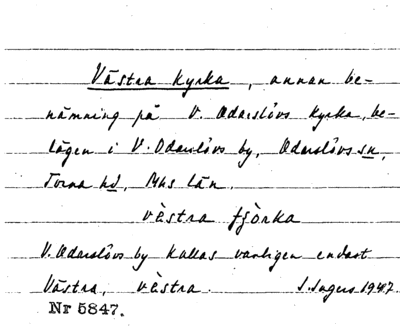 Västra Kyrka, annan be-
nämning på V. Odarslövs Kyrka, be-
lägen i V. Odarslövs by, Odarslövs sn,
Torna hd, Mhs län.
vèstra fjòrka
V. Odarslövs by kallas vanligen endast
Västra, vèstra. S. Ingers 1947
Nr 5847.